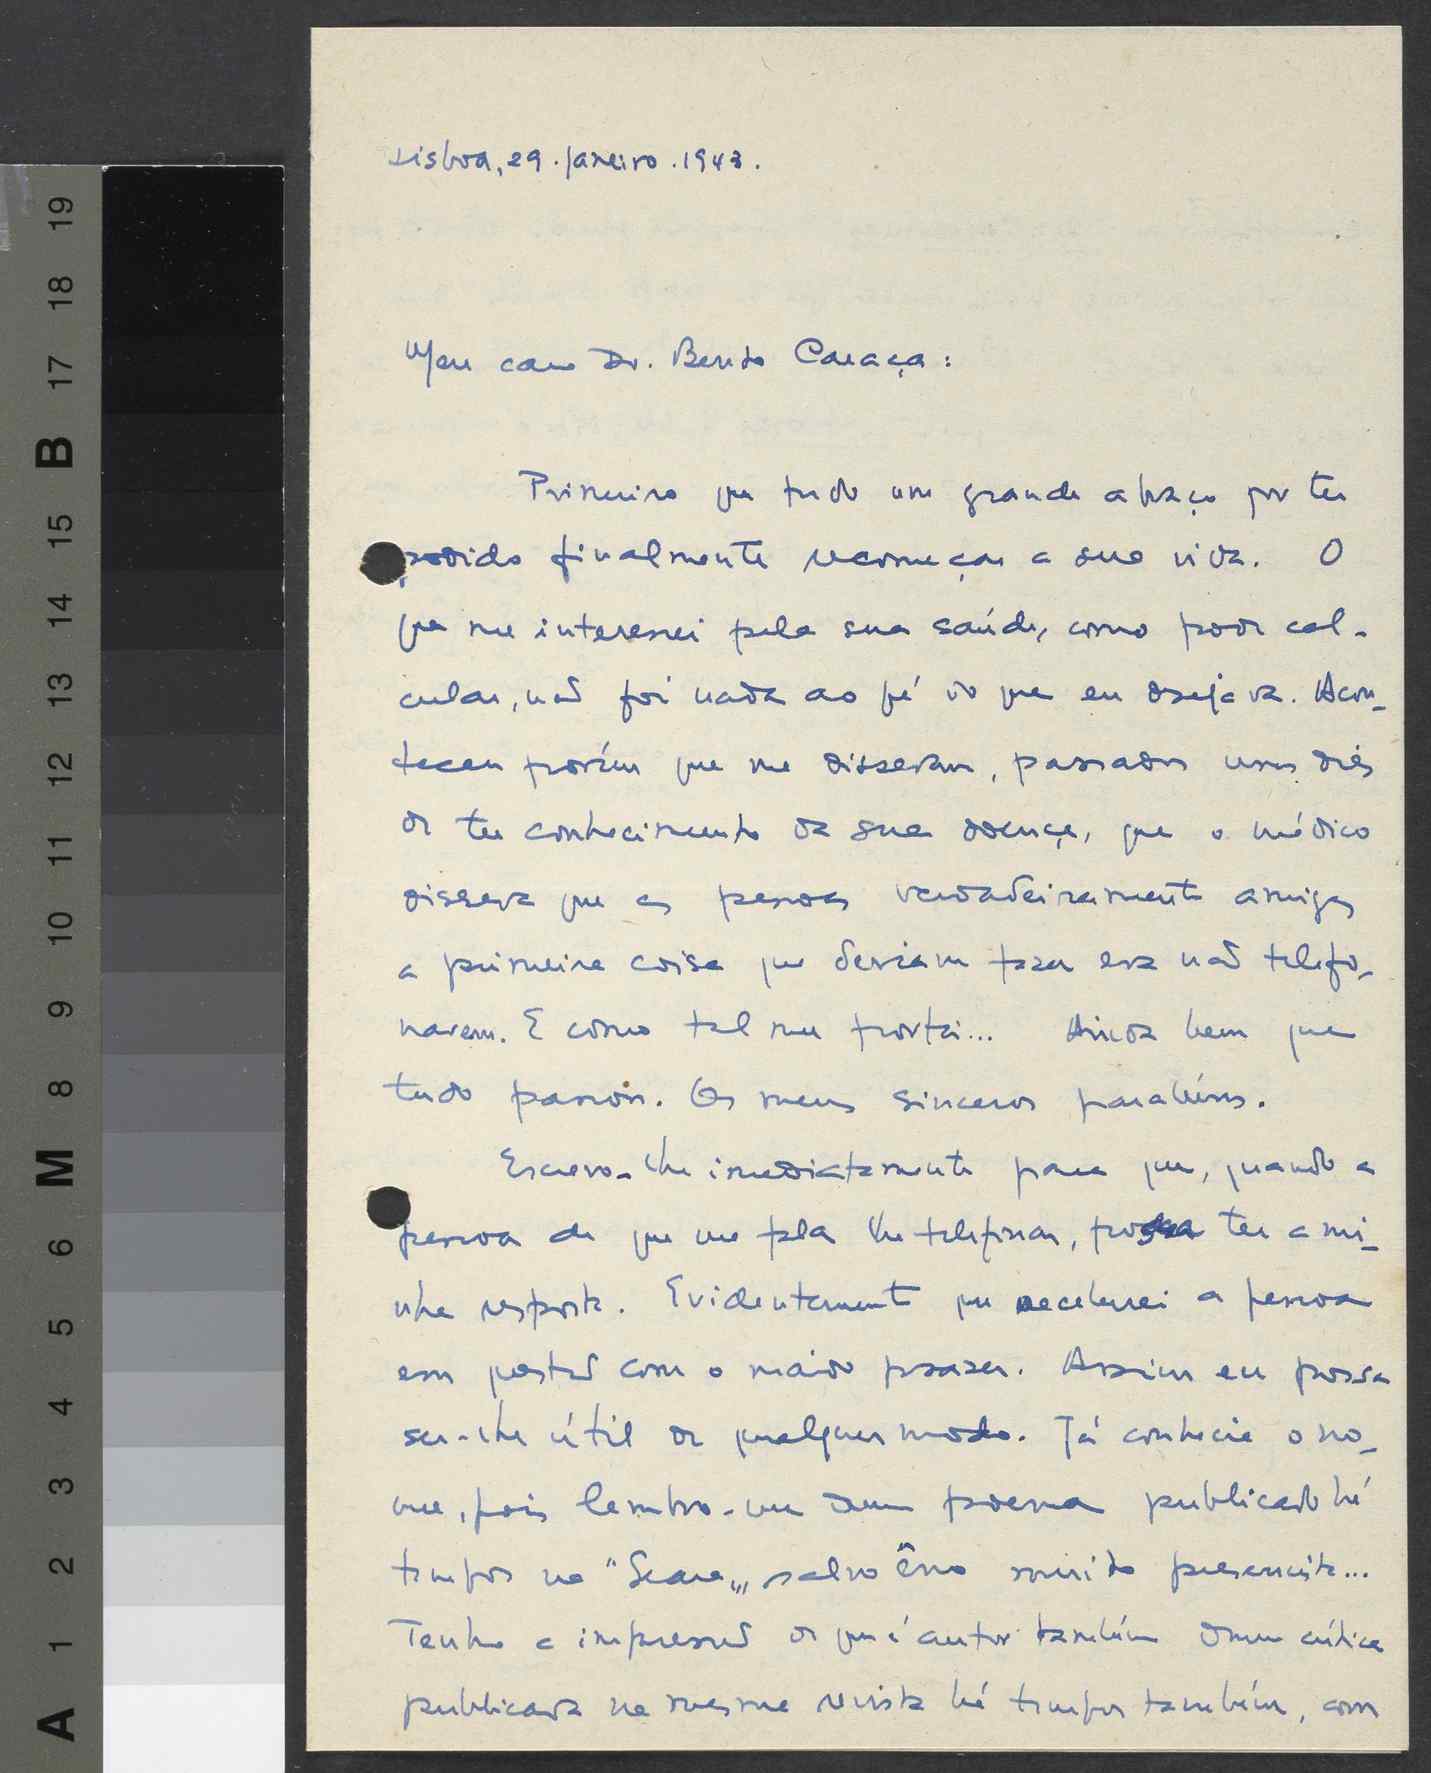 Lisboa, 29. Janeiro. 1943.
Meu caro Dr. Bento Caraça:
Primeiro que tudo um grande abraço por ter
podido finalmente recomeçar a sua vida. O
que me interessei pela sua saúde, como pode cal-
cular, não foi nada ao pé do que eu desejava. Acon-
teceu porém que me disseram, passados uns dias
de ter conhecimento da sua doença, que o médico
dissera que as pessoas verdadeiramente amigas
a primeira coisa que deviam fazer era não telefo-
narem. E como tal me portei... Ainda bem que
tudo passou. Os meus sinceros parabéns.
Escrevo-lhe imediatamente para que, quando a
pessoa de que me fala lhe telefonar, possa ter a mi-
nha resposta. Evidentemente que receberei a pessoa
em questão com o maior prazer. Assim eu possa
ser-lhe útil de qualquer modo. Já conhecia o no-
me, pois lembro-me dum poema publicado há
tempos na "Seara", salvo êrro muito presencista...
Tenho a impressão de que é autor também duma crítica
publicada na mesma revista há tempos também, com